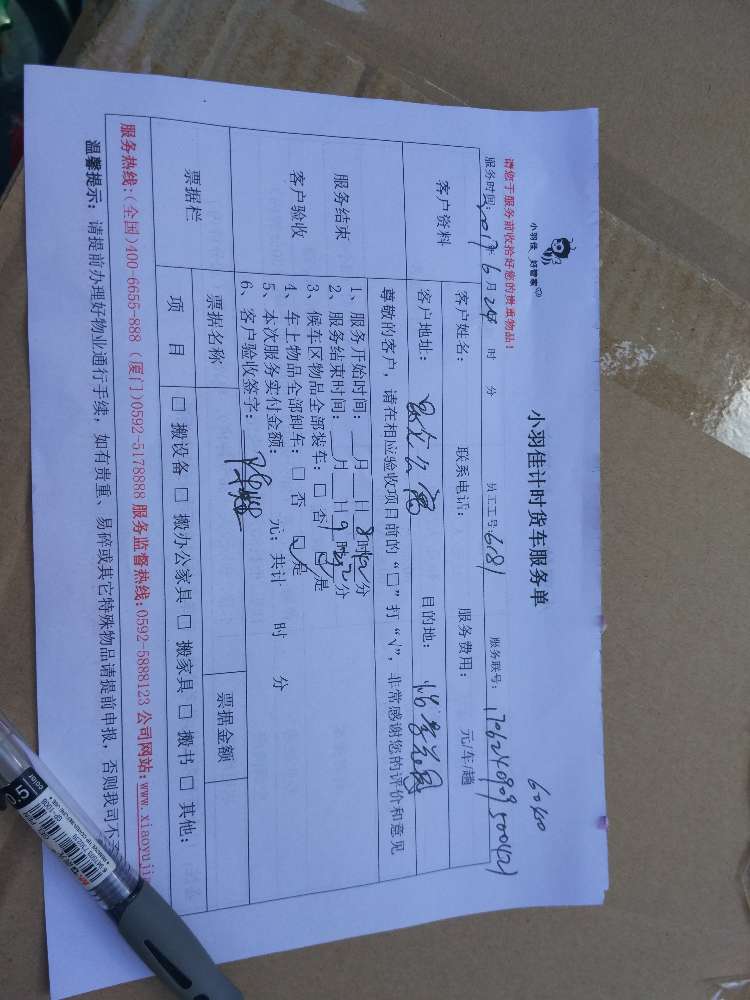 小羽佳 好管家
小羽佳计时货车服务单
6040
请您于服务前收拾好您的贵重物品！
服务时间：2017年6月24日 时 分 员工工号：6181 服务联号：
客户资料
客户姓名： 联系电话： 服务费用： 元/车/趟
客户地址： 目的地：
服务结束
客户验收
尊敬的客户，请在相应验收项目前的“□”打“√”，非常感谢您的评价和意见
1、服务开始时间： 月 日 8时 分
2、服务结束时间： 月 日 9时 分
3、候车区物品全部装车：□ 否 ☑ 是
4、车上物品全部卸车：□ 否 ☑ 是
5、本次服务实付金额： 元；共计 时 分
6、客户验收签字：
票据栏
票据名称 票据金额
项 目 □ 搬设备 □ 搬办公家具 □ 搬家具 □ 搬书 □ 其他：
服务热线：(全国)400-6655-888 (厦门)0592-5178888 服务监督热线：0592-5888123 公司网站：www.xiaoyuji
温馨提示：请提前办理好物业通行手续，如有贵重、易碎或其它特殊物品请提前申报，否则我司不
0.5
color